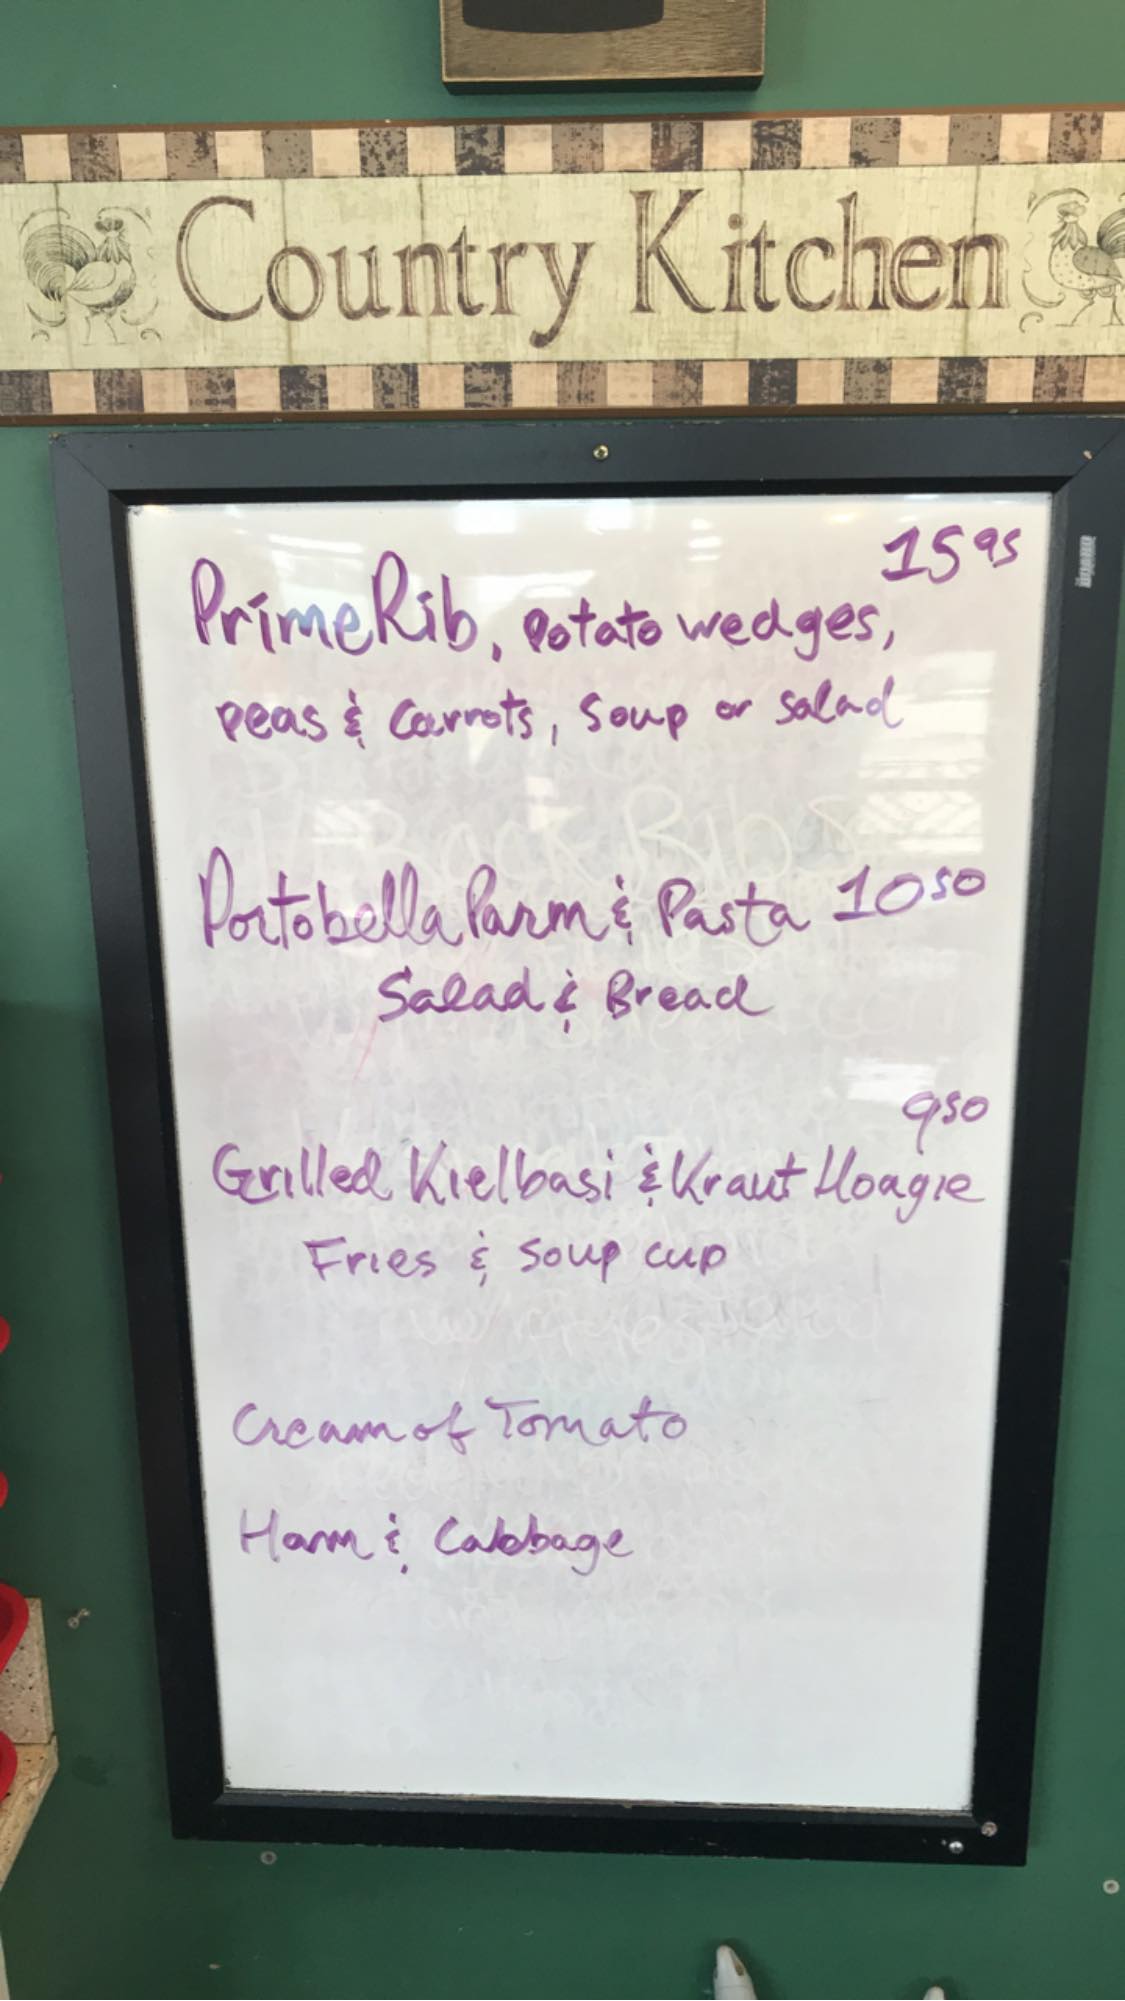 Country Kitchen
15 95
Prime Rib, Potato wedges,
peas & Carrots, Soup or Salad
Portobella Parm & Pasta 10 50
Salad & Bread
9 50
Grilled Kielbasi & Kraut Hoagie
Fries & Soup cup
Cream of Tomato
Ham & Cabbage